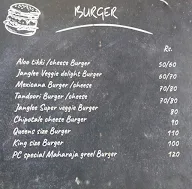 BURGER
Rs.
Aloo tikki /cheese Burger 50/60
Janglee Veggie delight Burger 60/70
Mexicana Burger /cheese 70/80
Tandoori Burger /cheese 70/80
Janglee Super veggie Burger 80
Chipotale cheese Burger 90
Queens size Burger 110
King size Burger 100
PC special Maharaja greel Burger 120